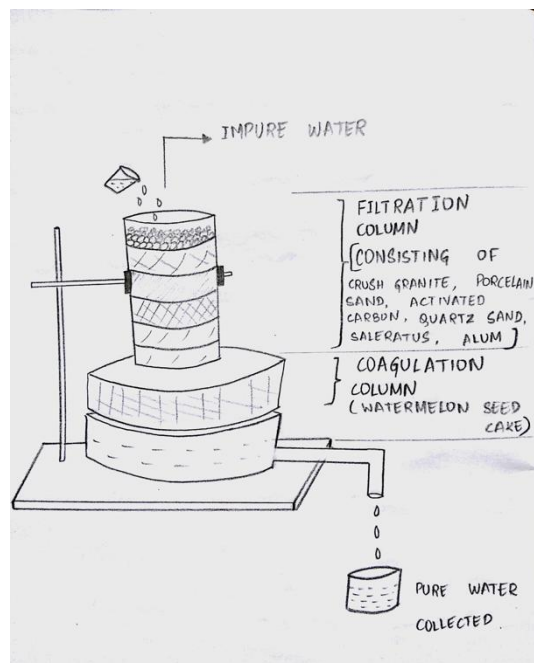 IMPURE WATER
FILTRATION
COLUMN
[CONSISTING OF
CRUSH GRANITE, PORCELAIN
SAND, ACTIVATED
CARBON, QUARTZ SAND,
SALERATUS, ALUM]
COAGULATION
COLUMN
(WATERMELON SEED
CAKE)
PURE WATER
COLLECTED.